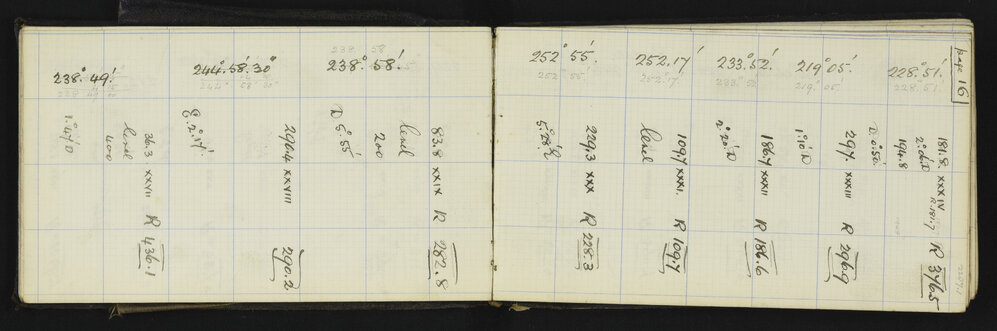 page 16
228°.51'.
228°.51'.
181.8 XXXIV R 376.5
R.181.7
2°.06.D
194.8
219°05'.
219°05'
297 XXXIII R 296.9
D 0°.50'.
233°.52'.
233°.52'
186.7 XXXII R 186.6
1°10'D
252.17'
252°.17'
109.7 XXXI. R 109.7
2°.20'.D
252°55'.
252°55'.
229.3 XXX R 228.3
level
5.28'E
238°58
238°.58'.
83.8 XXIX R 282.8
level
200
D 5°.55'
244°.58'.30"
244° 58' 30"
290.4 XXVIII 290.2
E.2°.17'.
238°.49'.
238° 49'
36.3 XXVII R 436.1
level
400
1°.47'D